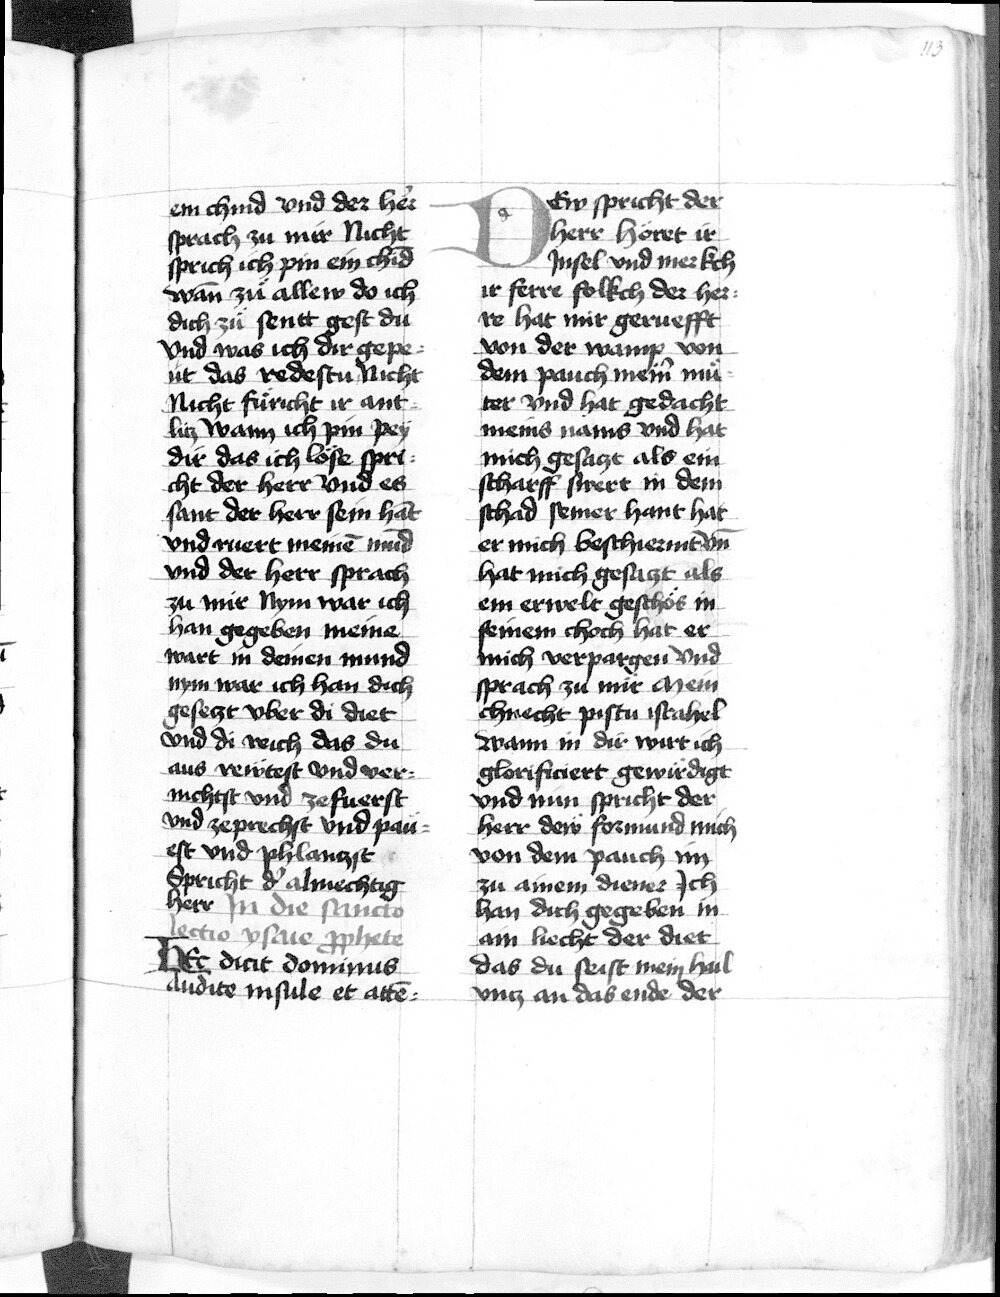 113
ein chind vnd der her̄
sprach zu mir Nicht
sprich ich pin ein chīd
wān zů allew do ich
dich zů sentt gest du
Vnd was ich dir gepe=
ut das redestu Nicht
Nicht fůricht ir ant=
litz Wann ich pin pey
dir das ich löse spri=
cht der herr Vnd es
sant der herr sein hāt
vnd ruert meinē mūd
vnd der herr sprach
zu mir Nym war ich
han gegeben meine
wart in deinen mund
nym war ich han dich
gesetzt vber di diet
vnd di reich das du
aus rewtest Vnd ver=
nichtst vnd zefuerst
vnd zeprechst vnd pau=
est vnd phlantzst
Spricht dʼ almechtig
herr In die sancto
lectio ysaie p̄phete
HEc dicit dominus
Audite insule et attē=
DEw spricht der
herr Höret ir
Jnsel vnd merkch
ir ferre folkch der her=
re hat mir geruefft
von der wamp von
dem pauch mein̄ mů=
ter vnd hat gedacht
meins nams vnd hat
mich gesatzt als ein
scharff swert in dem
schad seiner hant hat
er mich beschiermt vn̄
hat mich gesatzt als
ein erwelt geschös in
seinem choch hat er
mich verpargen Vnd
sprach zu mir Mein
chnecht pistu israhel
Wann in dir wirt ich
glorificiert gewirdigt
vnd nun spricht der
herr dew formund mich
von dem pauch im
zu ainem diener Jch
han dich gegeben in
ain liecht der diet
das du seist mein hail
vntz an das ende der